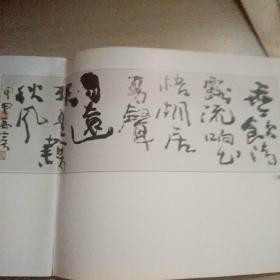 垂緌飲清
露流响出
桐居
高聲
自遠
非是藉
秋风